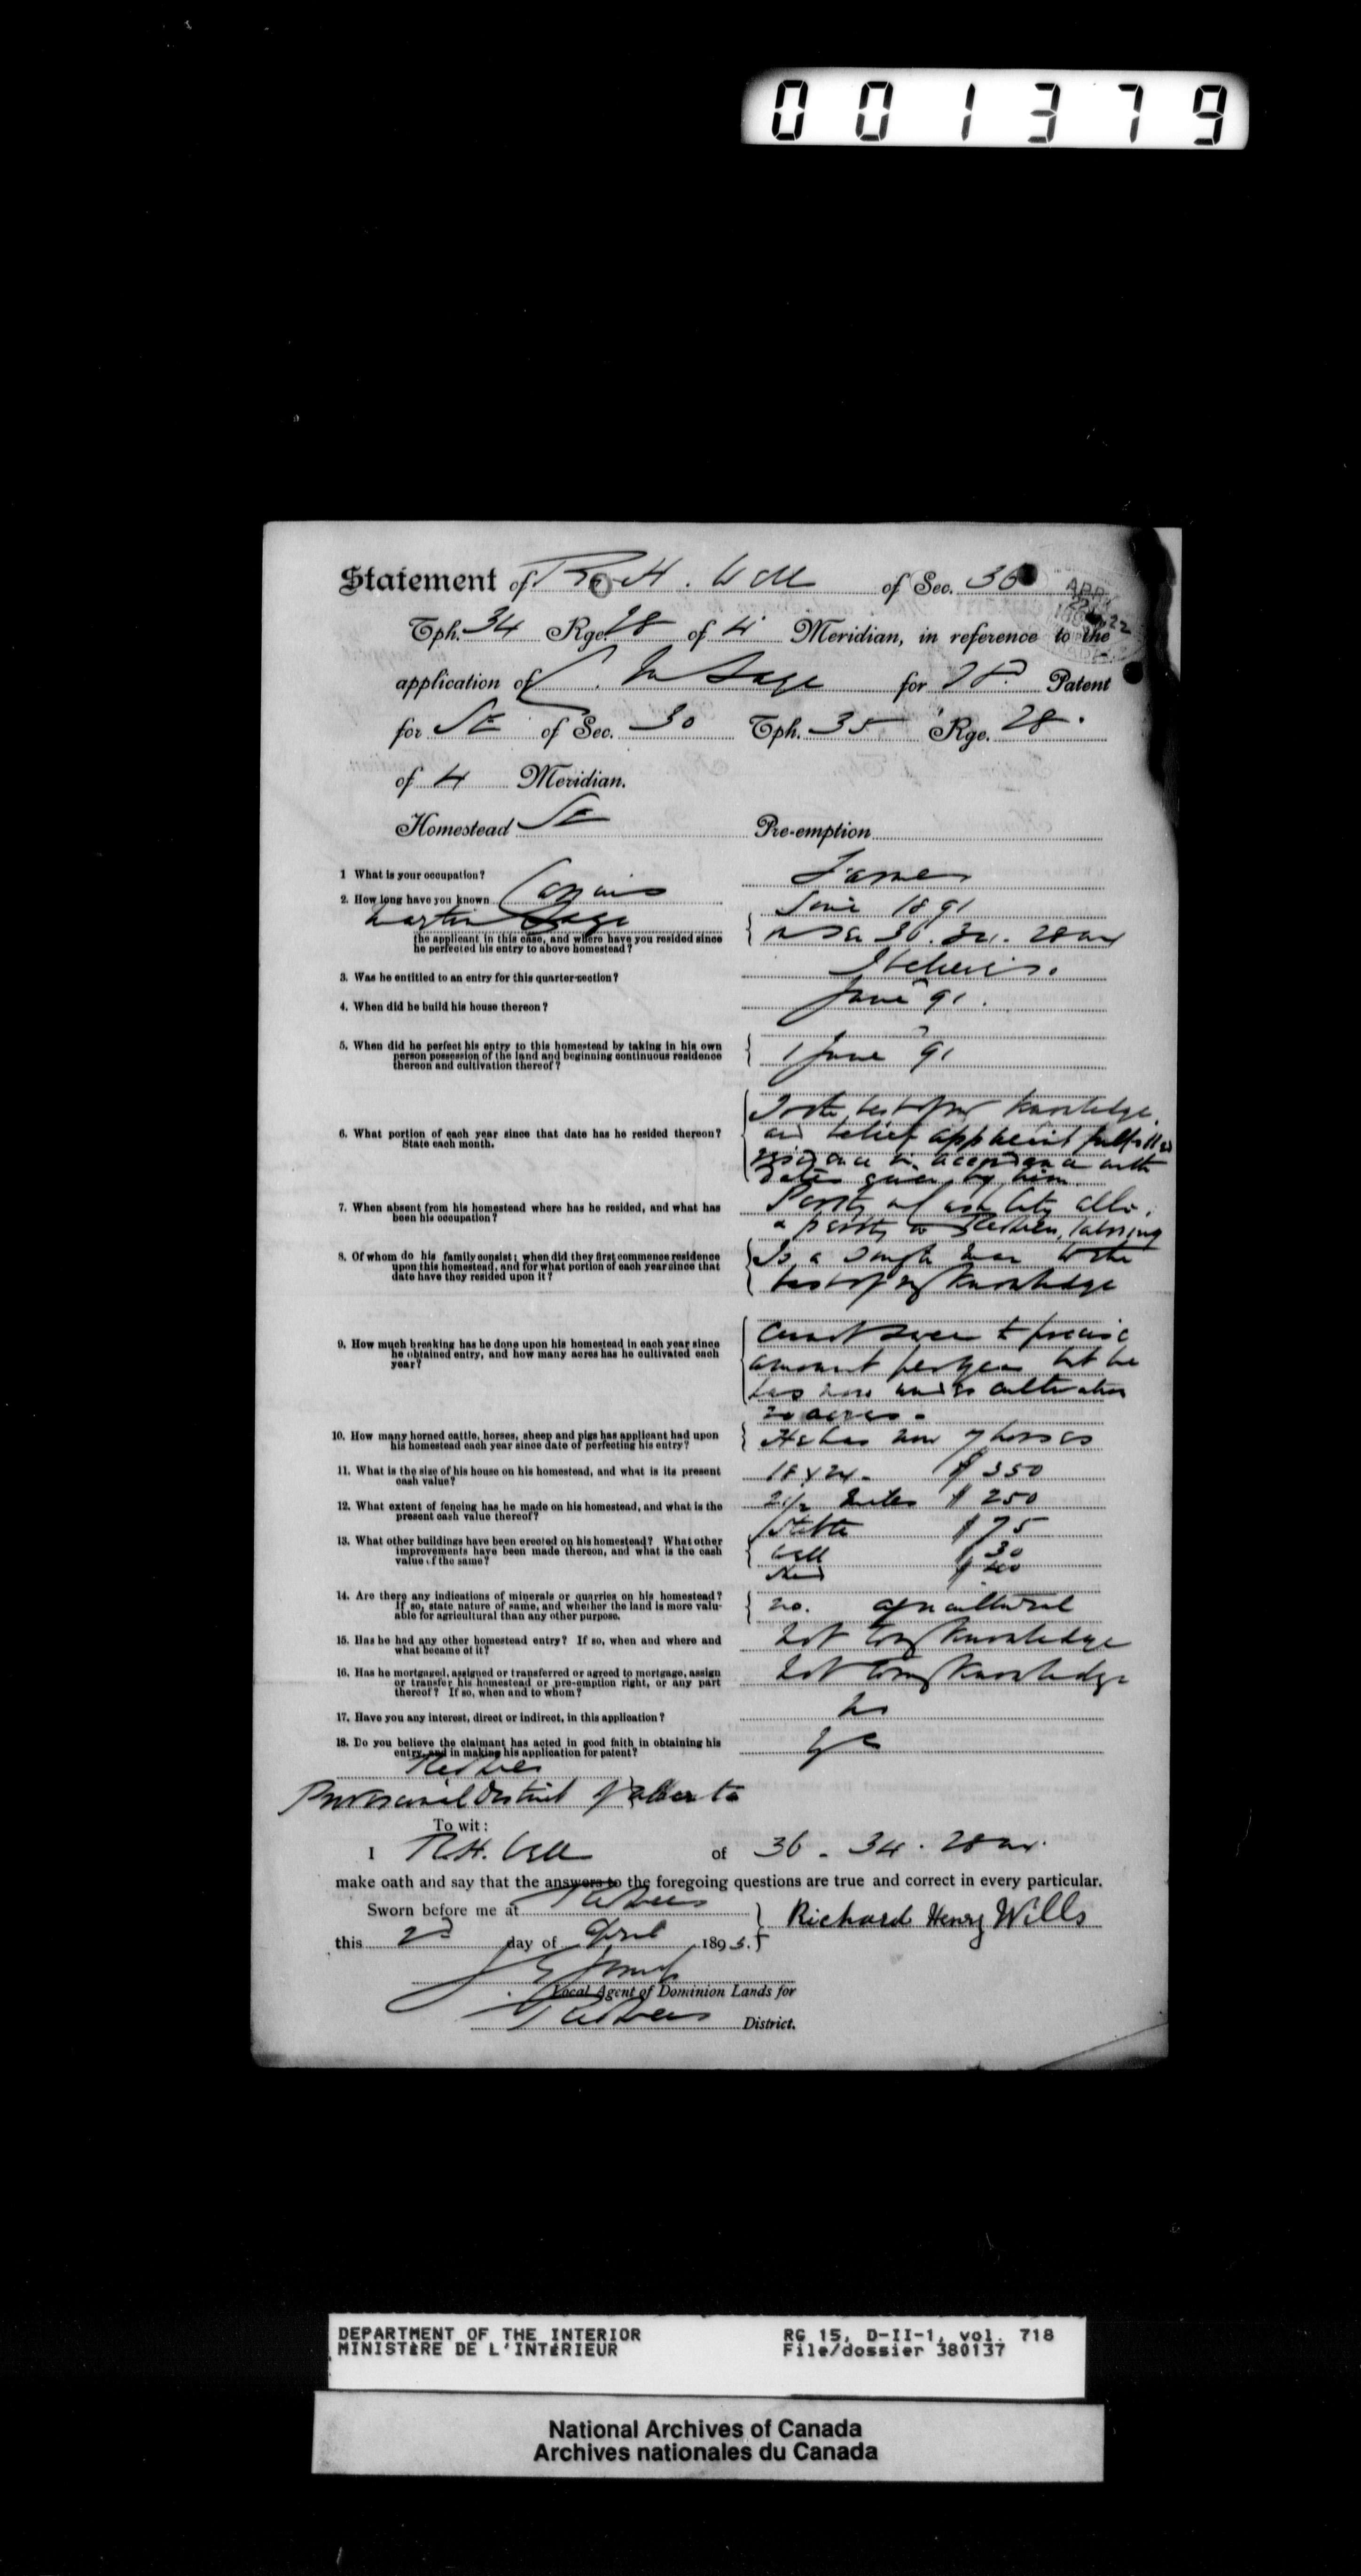 001379
Statement of R. H. Wills of Sec. 36
Tph. 34 Rge. 28 of 4 Meridian, in reference to the
application of C. M Sage for Patent
for SE of Sec. 30 Tph. 35 Rge. 28.
of 4 Meridian.
Homestead SE Pre-emption
1 What is your occupation? Farmer
2. How long have you known
Martin Sage June 1891
the applicant in this case, and where have you resided since
he perfected his entry to above homestead? 36. 34. 28
3. Was he entitled to an entry for this quarter-section? I believe so.
4. When did he build his house thereon? June 91.
5. When did he perfect his entry to this homestead by taking in his own
person possession of the land and beginning continuous residence
thereon and cultivation thereof? 1 June 91
6. What portion of each year since that date has he resided thereon?
State each month.
To the best of my knowledge
and belief applicant fulfilled
residence in accordance with
dates given by him.
7. When absent from his homestead where has he resided, and what has
been his occupation?
Partly
& partly
8. Of whom do his family consist; when did they first commence residence
upon this homestead, and for what portion of each year since that
date have they resided upon it?
Is a single man to the
best of my knowledge
9. How much breaking has he done upon his homestead in each year since
he obtained entry, and how many acres has he cultivated each
year?
Cannot swear to precise
amount per year but he
has now under cultivation
20 acres.
10. How many horned cattle, horses, sheep and pigs has applicant had upon
his homestead each year since date of perfecting his entry?
He has now 7 horses
11. What is the size of his house on his homestead, and what is its present
cash value? 18 x 24. $ 350
12. What extent of fencing has he made on his homestead, and what is the
present cash value thereof? 2 1/2 miles $ 250
13. What other buildings have been erected on his homestead? What other
improvements have been made thereon, and what is the cash
value of the same?
Stable $ 75
Well $ 30
Shed
14. Are there any indications of minerals or quarries on his homestead?
If so, state nature of same, and whether the land is more valu-
able for agricultural than any other purpose.
no. agricultural
15. Has he had any other homestead entry? If so, when and where and
what became of it? Not to my knowledge
16. Has he mortgaged, assigned or transferred or agreed to mortgage, assign
or transfer his homestead or pre-emption right, or any part
thereof? If so, when and to whom? Not to my knowledge
17. Have you any interest, direct or indirect, in this application? No
18. Do you believe the claimant has acted in good faith in obtaining his
entry, and in making his application for patent? Yes
Red Deer
Provisional District of Alberta
To wit:
I R. H. Wills of 36 - 34 - 28
make oath and say that the answers to the foregoing questions are true and correct in every particular.
Sworn before me at Red Deer
Richard Henry Wills
this 2nd day of April 1895.
Local Agent of Dominion Lands for
Red Deer District.
DEPARTMENT OF THE INTERIOR RG 15, D-II-1, vol. 718
MINISTÈRE DE L'INTÉRIEUR File/dossier 380137
National Archives of Canada
Archives nationales du Canada